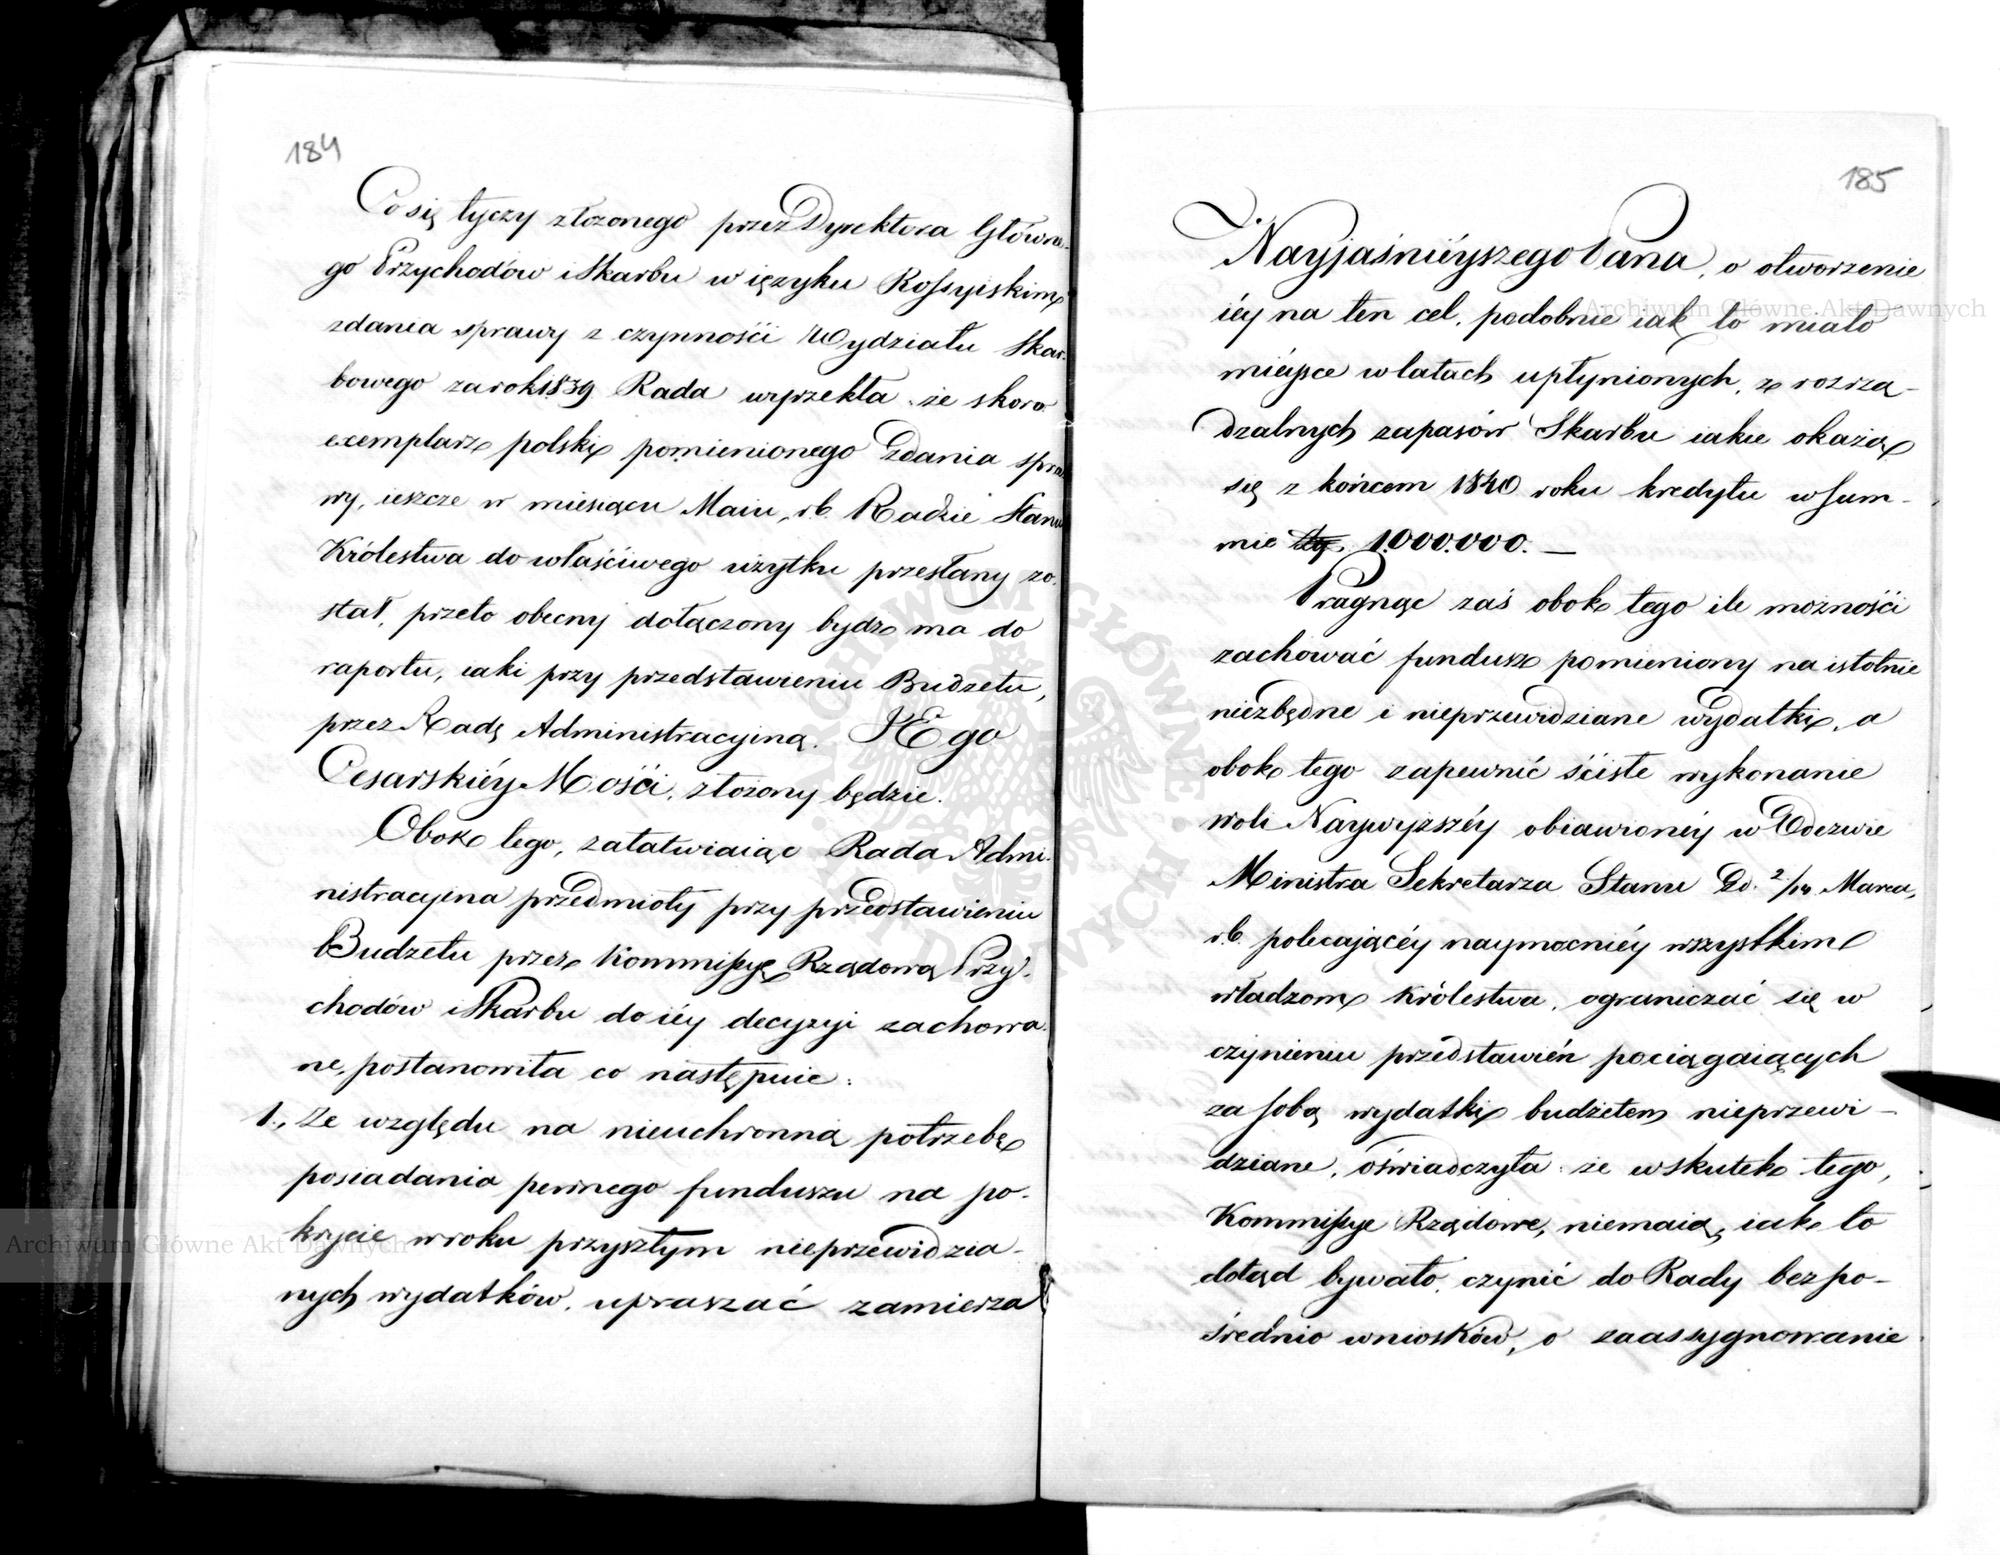 184
Co się tyczy złożonego przez Dyrektora Główne-
go Przychodów i Skarbu w ięzyku Rossyiskim
zdania sprawy z czynności Wydziału Skar-
bowego za rok 1839 Rada wyrzekła, że skoro
exemplarz polski pomienionego Zdania spra-
wy, ieszcze w miesiącu Maiu, r.b. Radzie Stanu
Królestwa do właściwego użytku przesłany zo-
stał, przeto obecny dołączony bydz ma do
raportu, iaki przy przedstawieniu Budżetu,
przez Radę Administracyiną. JEgo
Cesarskiéy Mości, złożony będzie.
Obok tego, załatwiaiąc Rada Admi-
nistracyina przedmioty przy przedstawieniu
Budżetu przez Kommissyę Rządową Przy-
chodów i Skarbu do iéy decyzyi zachowa-
ne, postanowiła co następuie:
1., Ze względu na nieuchronną potrzebę
posiadania pewnego funduszu na po-
krycie w roku przyszłym nieprzewidzia-
nych wydatków, upraszać zamierza
185
Nayjaśnieyszego Pana, o otworzenie
iéy na ten cel, podobnie iak to miało
miéysce w latach upłynionych, z rozrzą-
dzalnych zapasów Skarbu iakie okażą
się z końcem 1840 roku kredytu w sum-
mie 1.000.000. —
Pragnąc zaś obok tego ile możności
zachować fundusz pomieniony na istotnie
niezbędne i nieprzewidziane wydatki, a
obok tego zapewnić ściste wykonanie
woli Naywyższéy obiawionéy w Odezwie
Ministra Sekretarza Stanu Zd. 2/14 Marca,
r.b. polecającéy naymocniéy wszystkim
władzom Królestwa, ograniczać się w
czynieniu przedstawień pociągaiących
za sobą wydatki budżetem nieprzewi-
dziane, oświadczyła: że wskutek tego,
Kommissye Rządowe, niemaią, iak to
dotąd bywało, czynić do Rady bezpo-
średnio wniosków, o zaassygnowanie
Archiwum Główne Akt Dawnych
Archiwum Główne Akt Dawnych
ARCHIWUM GŁÓWNE AKT DAWNYCH